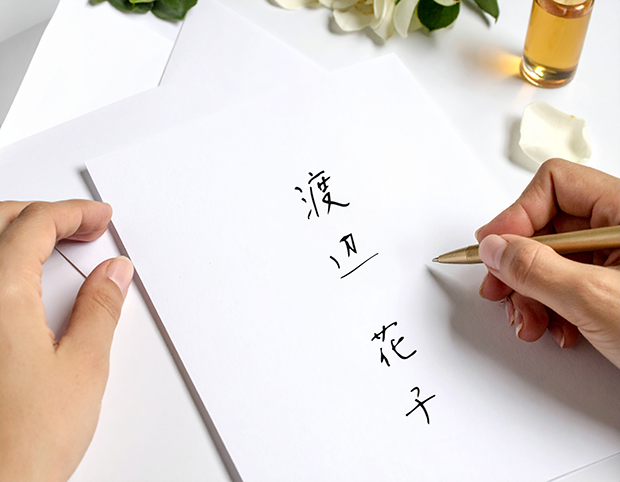 渡辺花子